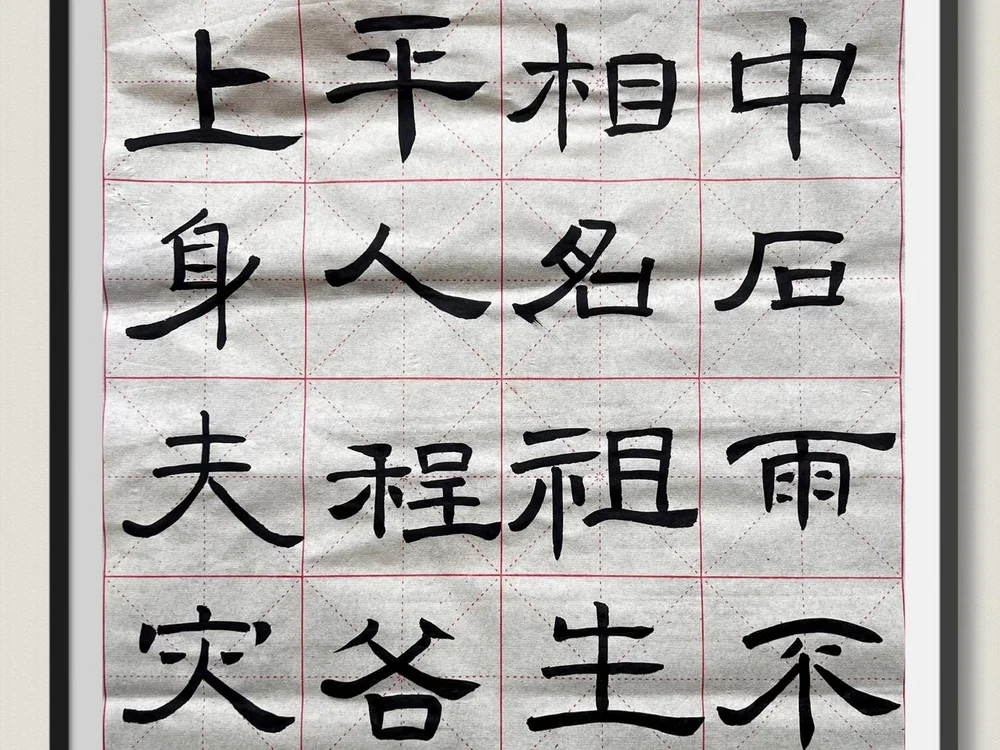 中石雨不
相名祖生
平人程谷
上身夫灾